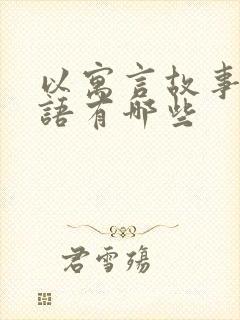 以寓言故事
語有哪些
君雪殤